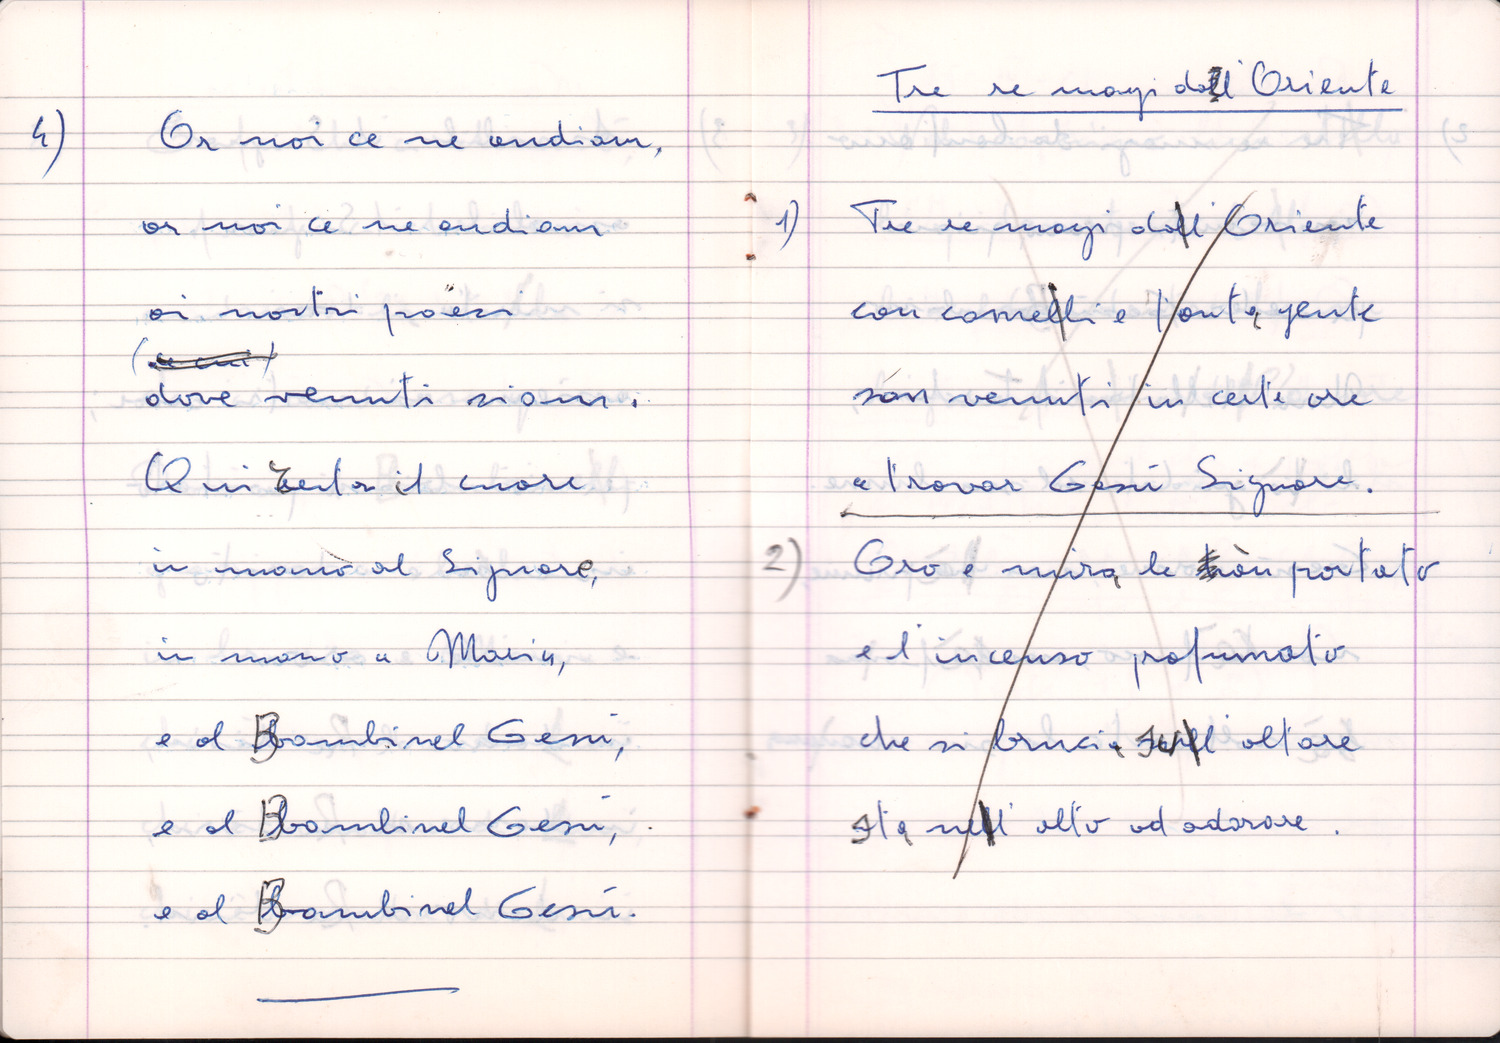 4) Or noi ce ne andiam,
or noi ce ne andiam
ai nostri paesi
dove venuti siam.
Qui resta il cuore
in mano al Signore,
in mano a Maria,
e al Bambinel Gesù,
e al Bambinel Gesù,
e al Bambinel Gesù.
Tre re magi dal' Oriente
1) Tre re magi dal' Oriente
con cameli e tanta gente
son venuti in certe ore
a trovar Gesù Signore.
2) Oro e mira le àn portato
e l'incenso profumato
che si brucia sul' altare
sta nel' alto ad adorare.